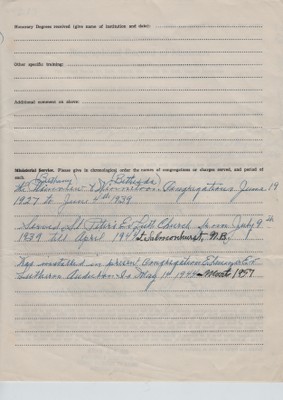 Honorary Degrees received (give name of institution and date):
Other specific training:
Additional comment on above:
Ministerial Service. Please give in chronological order the names of congregations or charges served, and period of
each.
(Bethany) (Bethesda)
Congregations June 19
1927 to June 4th 1939
Served St Peters Ev Luth Church from July 9th
1939 till April 1944
Was installed in present Congregation
Lutheran May 14 1944 1957